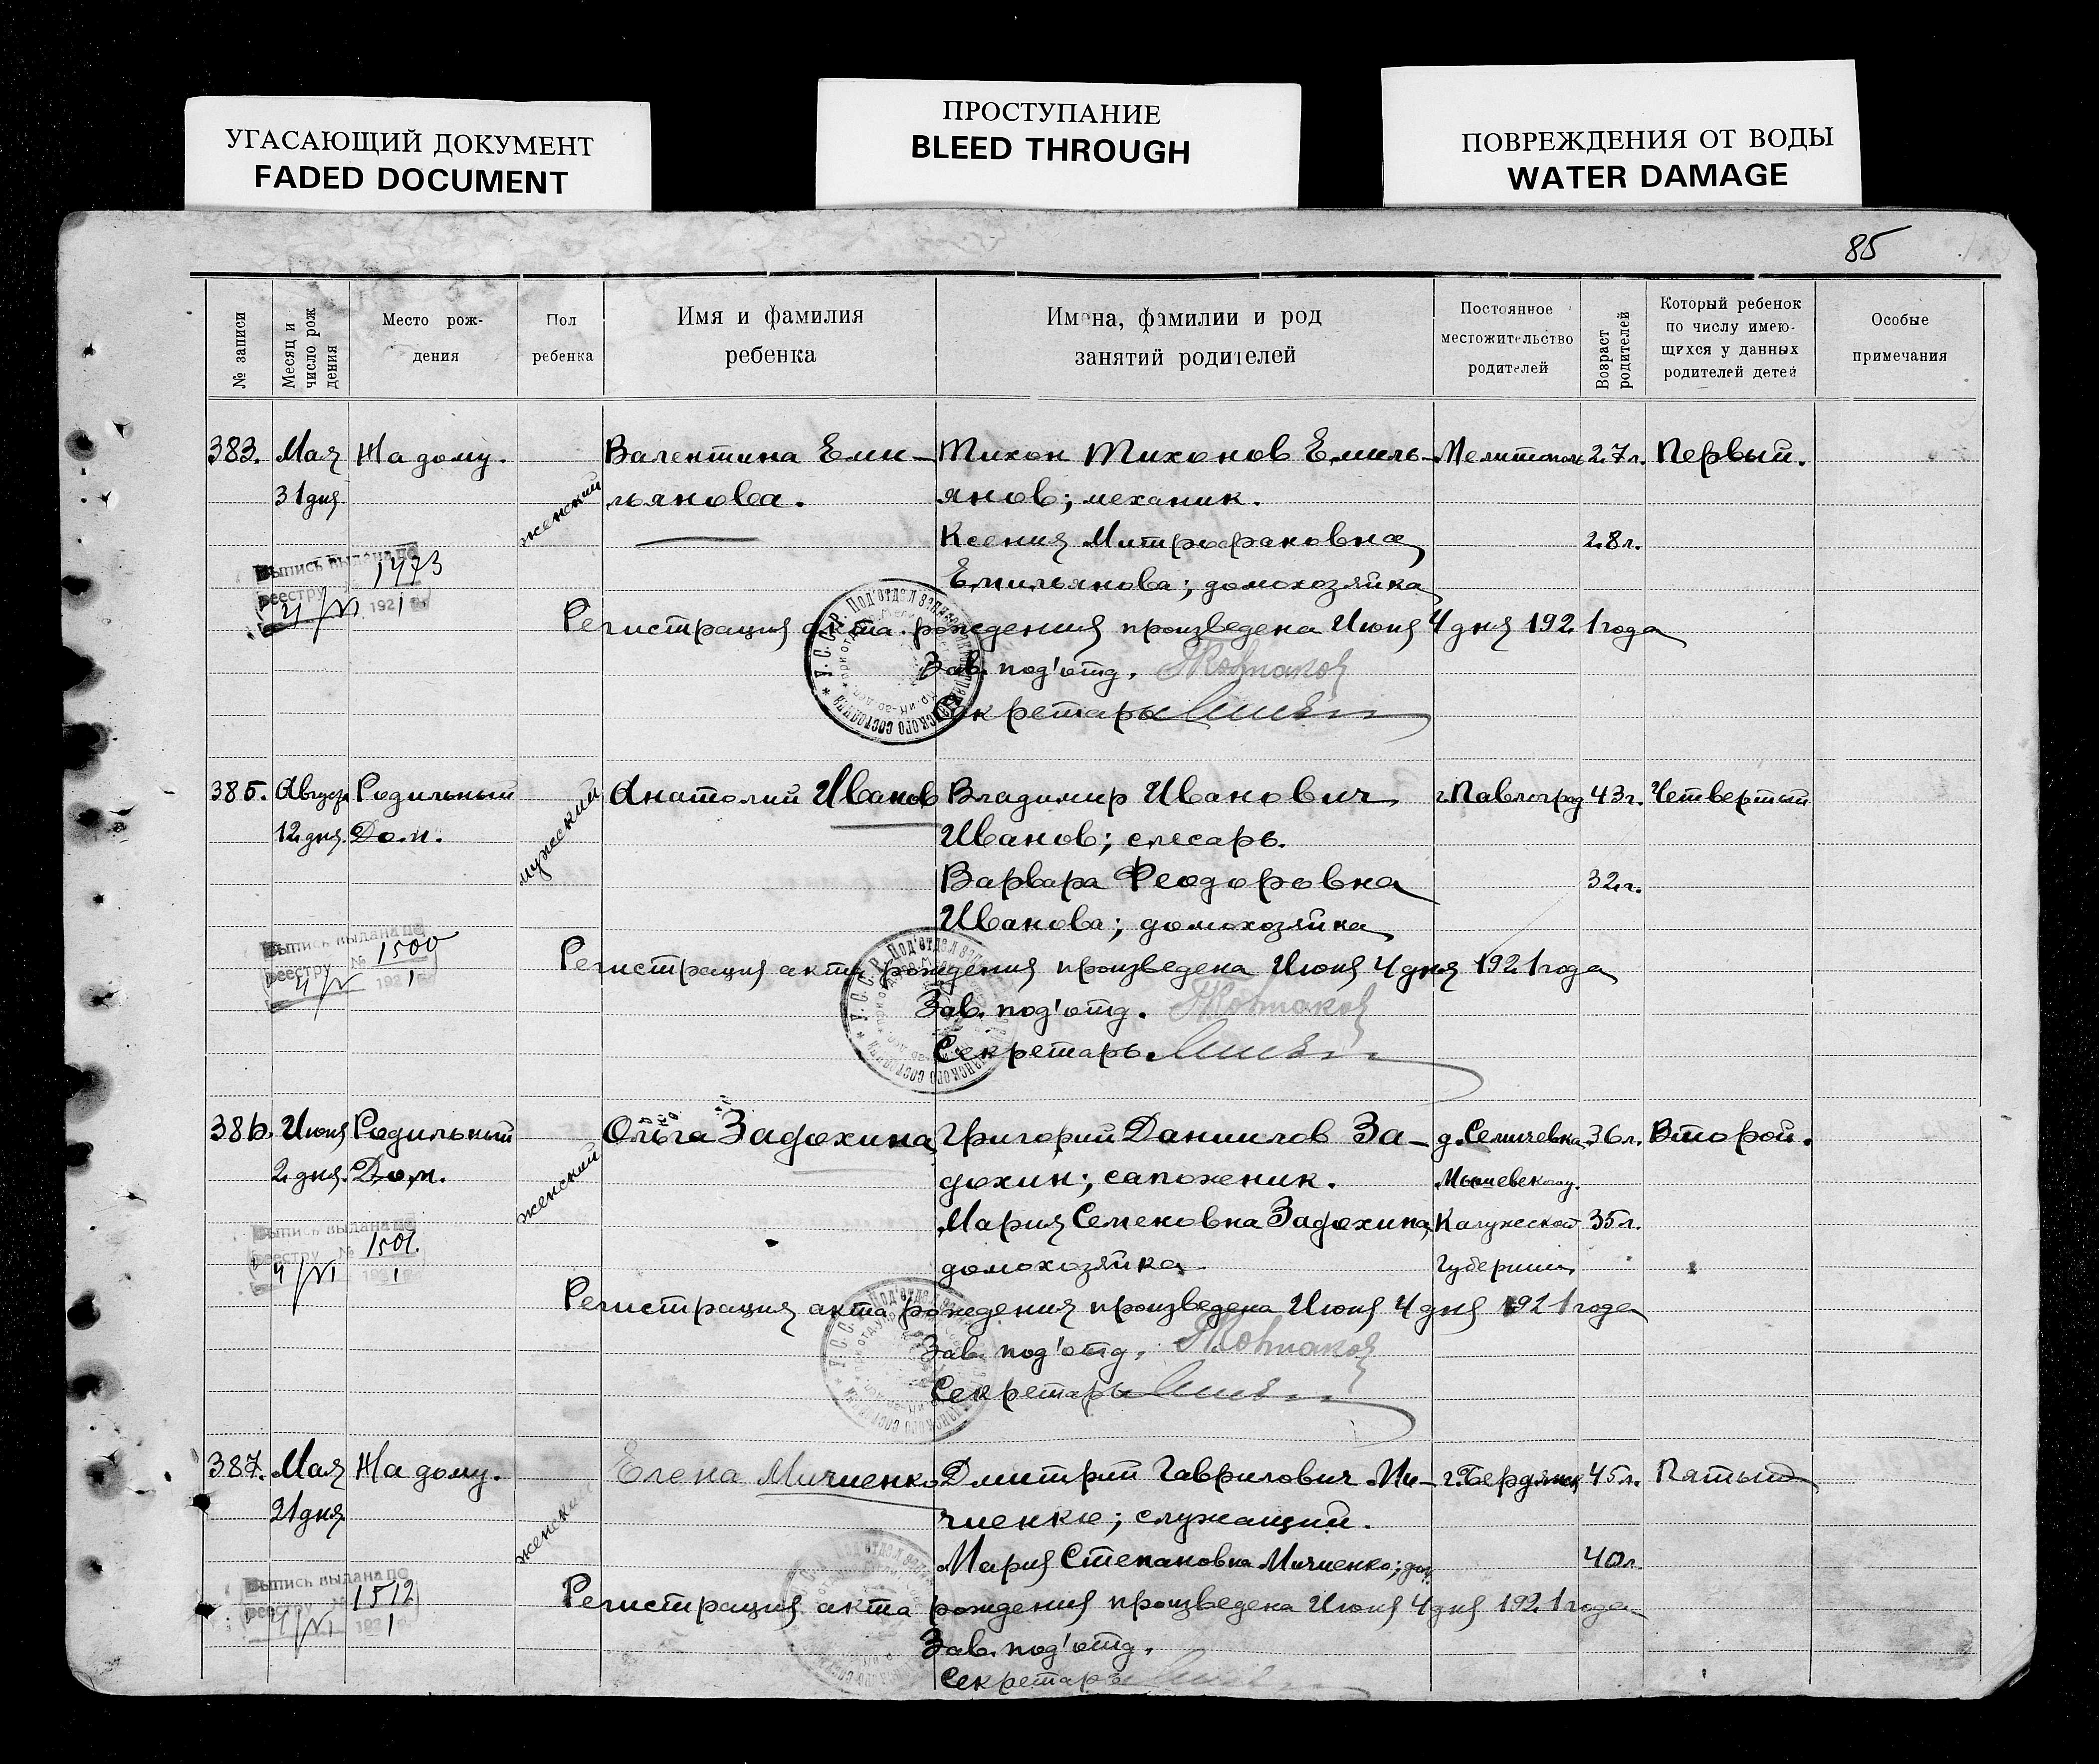 УГАСАЮЩИЙ ДОКУМЕНТ
FADED DOCUMENT
ПРОСТУПАНИЕ
BLEED THROUGH
ПОВРЕЖДЕНИЯ ОТ ВОДЫ
WATER DAMAGE
85
№ записи
Месяц и число рож дения
Место рож-
дения
Пол
ребенка
Имя и фамилия
ребенка
Имена, фамилии и род
занятий родителей
Постоянное
местожительство
родителей
Возраст родителей
Который ребенок
по числу имею-
щихся у данных
родителей детей
Особые
примечания
383. Мая На дому. женский Валентина Еми- Тихон Тихонов Емиль- Мелитополь 27л. Первый.
31 дня льянова. янов; механик.
Ксения Митрофановна 28л.
Выпись выдана по 1473
Емильянова; домохозяйка
реестру 4/VI 1921
Регистрация акта рождения произведена Июня 4 дня 1921 года
Зав. под'отд.
Секретарь
385. Августа Родильный мужской Анатолий Иванов Владимир Иванович г. Павлоград 43г. Четвертый
12 дня. Дом. Иванов; слесарь.
Варвара Феодоровна 32г.
Иванова; домохозяйка
Выпись выдана по
реестру № 1500
4/VI 1921
Регистрация акта рождения произведена Июня 4 дня 1921 года
Зав. под'отд.
Секретарь
386. Июня Родильный женский Ольга Задохина Григорий Даниилов За- д. 36л. Второй.
2 дня. Дом. дохин; сапожник.
Мария Семеновна Задохина, Калужской 35л.
домохозяйка Губернии
Выпись выдана по
реестру № 1501.
4/VI 1921
Регистрация акта рождения произведена Июня 4 дня 1921 года
Зав. под'отд.
Секретарь
387. Мая На дому. женский Елена Мичиенко Дмитрий Гаврилович Ми- г. Бердянск 45л. Пятый
21 дня чиенко; служащий.
Мария Степановна Мичиенко; дом. 40л
Выпись выдана по
реестру № 1512
4/VI 1921
Регистрация акта рождения произведена Июня 4 дня 1921 года
Зав. под'отд.
Секретарь